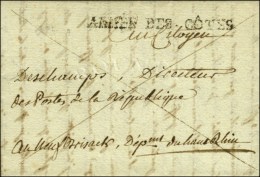 ARMÉE DES CÔTES
au Citoyen
Deschamps, Directeur
des Postes de la République
au Neuf Brisach, Dépmt du haut Rhin